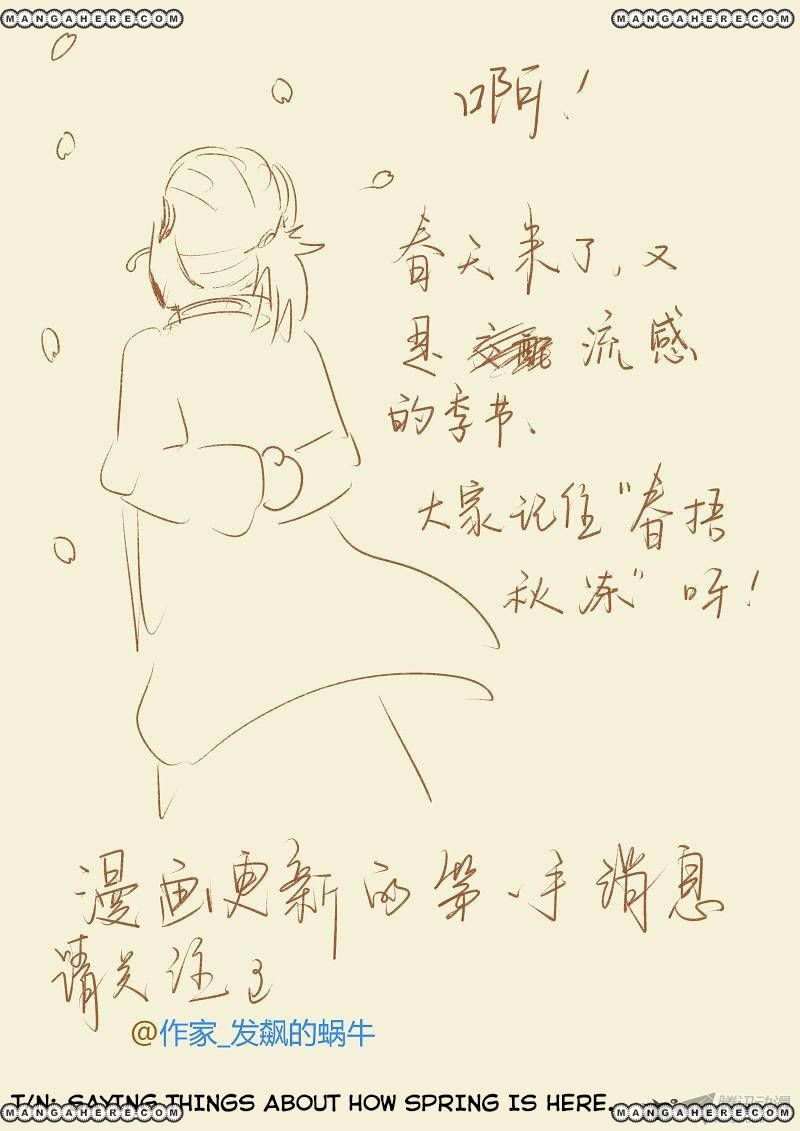 MANGAHERE.COM
MANGAHERE.COM
啊！
春天来了，又
是 交配 流感
的季节、
大家记住“春捂
秋冻”呀！
漫画更新的第一手消息
请关注
@作家_发飙的蜗牛
T/N: SAYING THINGS ABOUT HOW SPRING IS HERE.
腾讯动漫
MANGAHERE.COM
MANGAHERE.COM